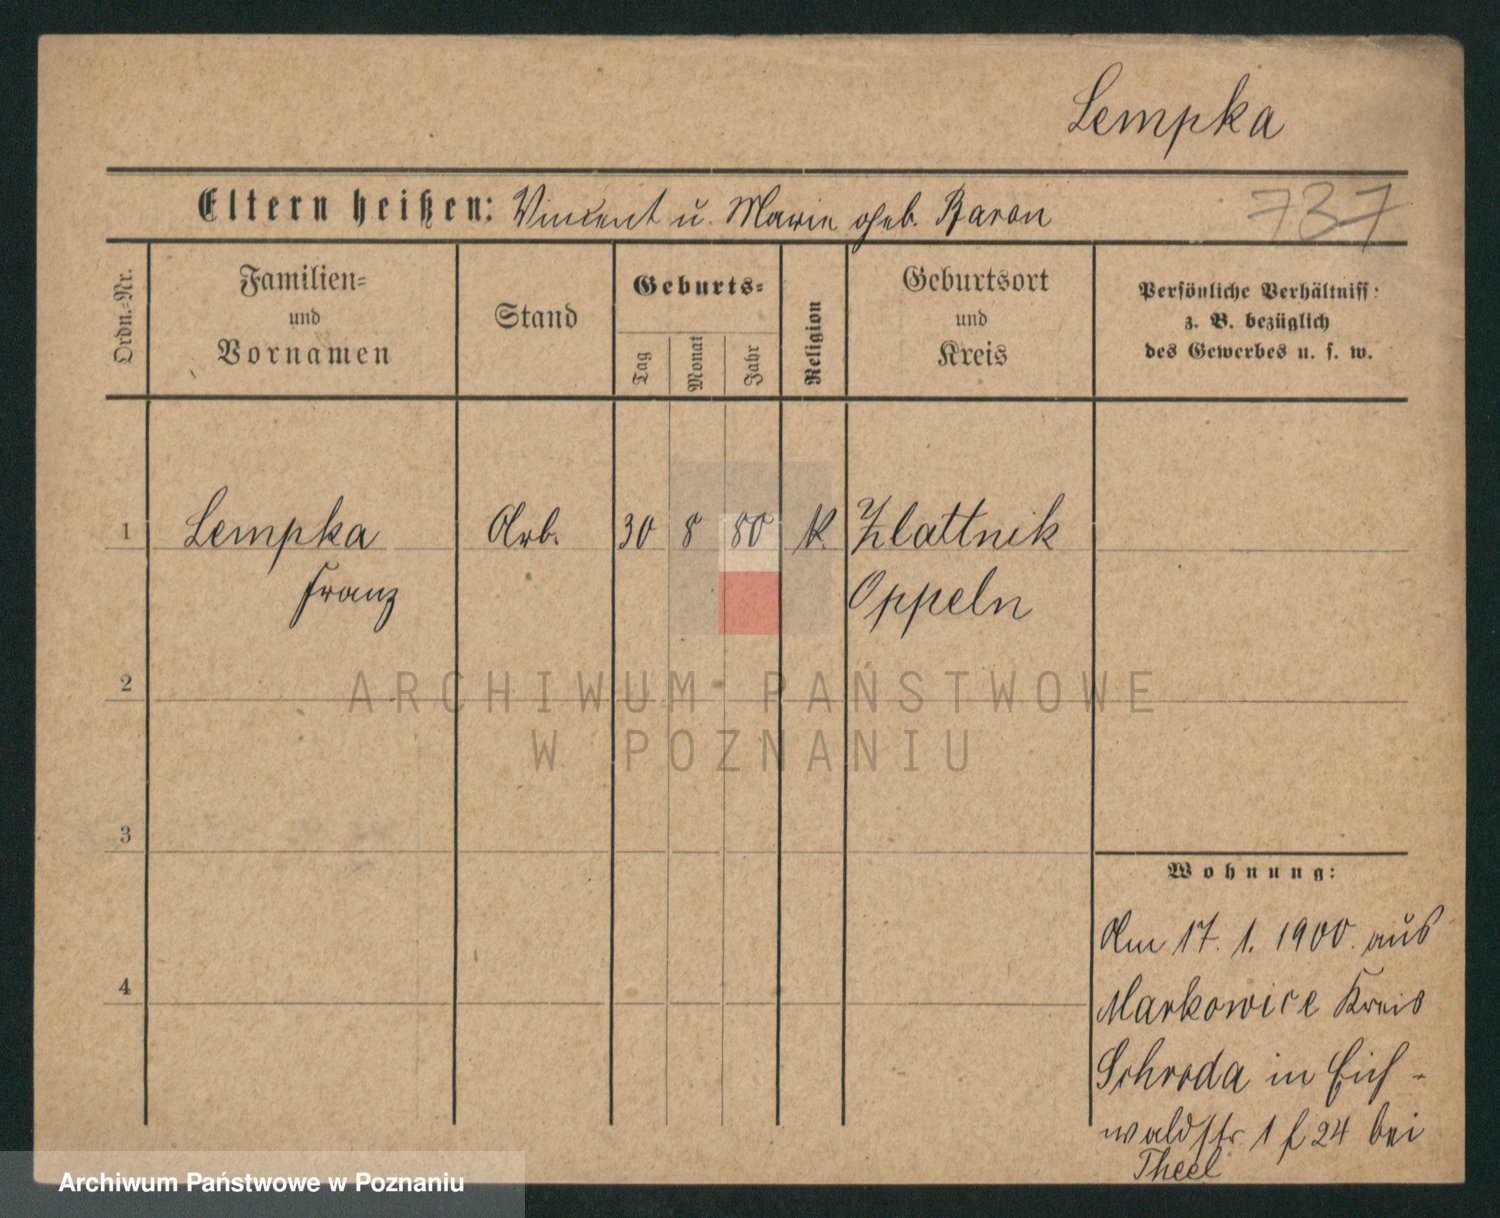 Lempka
Eltern heißen: Vincent u. Marie geb. Baron
737
Ordn.-Nr.
Familien-
und
Vornamen
Stand
Geburts-
Tag
Monat
Jahr
Religion
Geburtsort
und
Kreis
Persönliche Verhältniss:
z. B. bezüglich
des Gewerbes u. s. w.
1 Lempka Arb. 30 8 80 K. Zlattnik
Franz Oppeln
2
ARCHIWUM PAŃSTWOWE
W POZNANIU
3
Wohnung:
Am 17. 1. 1900. aus
4
Markowice Kreis
Schroda in Eich-
waldstr. 1 f 24 bei
Theel
Archiwum Państwowe w Poznaniu